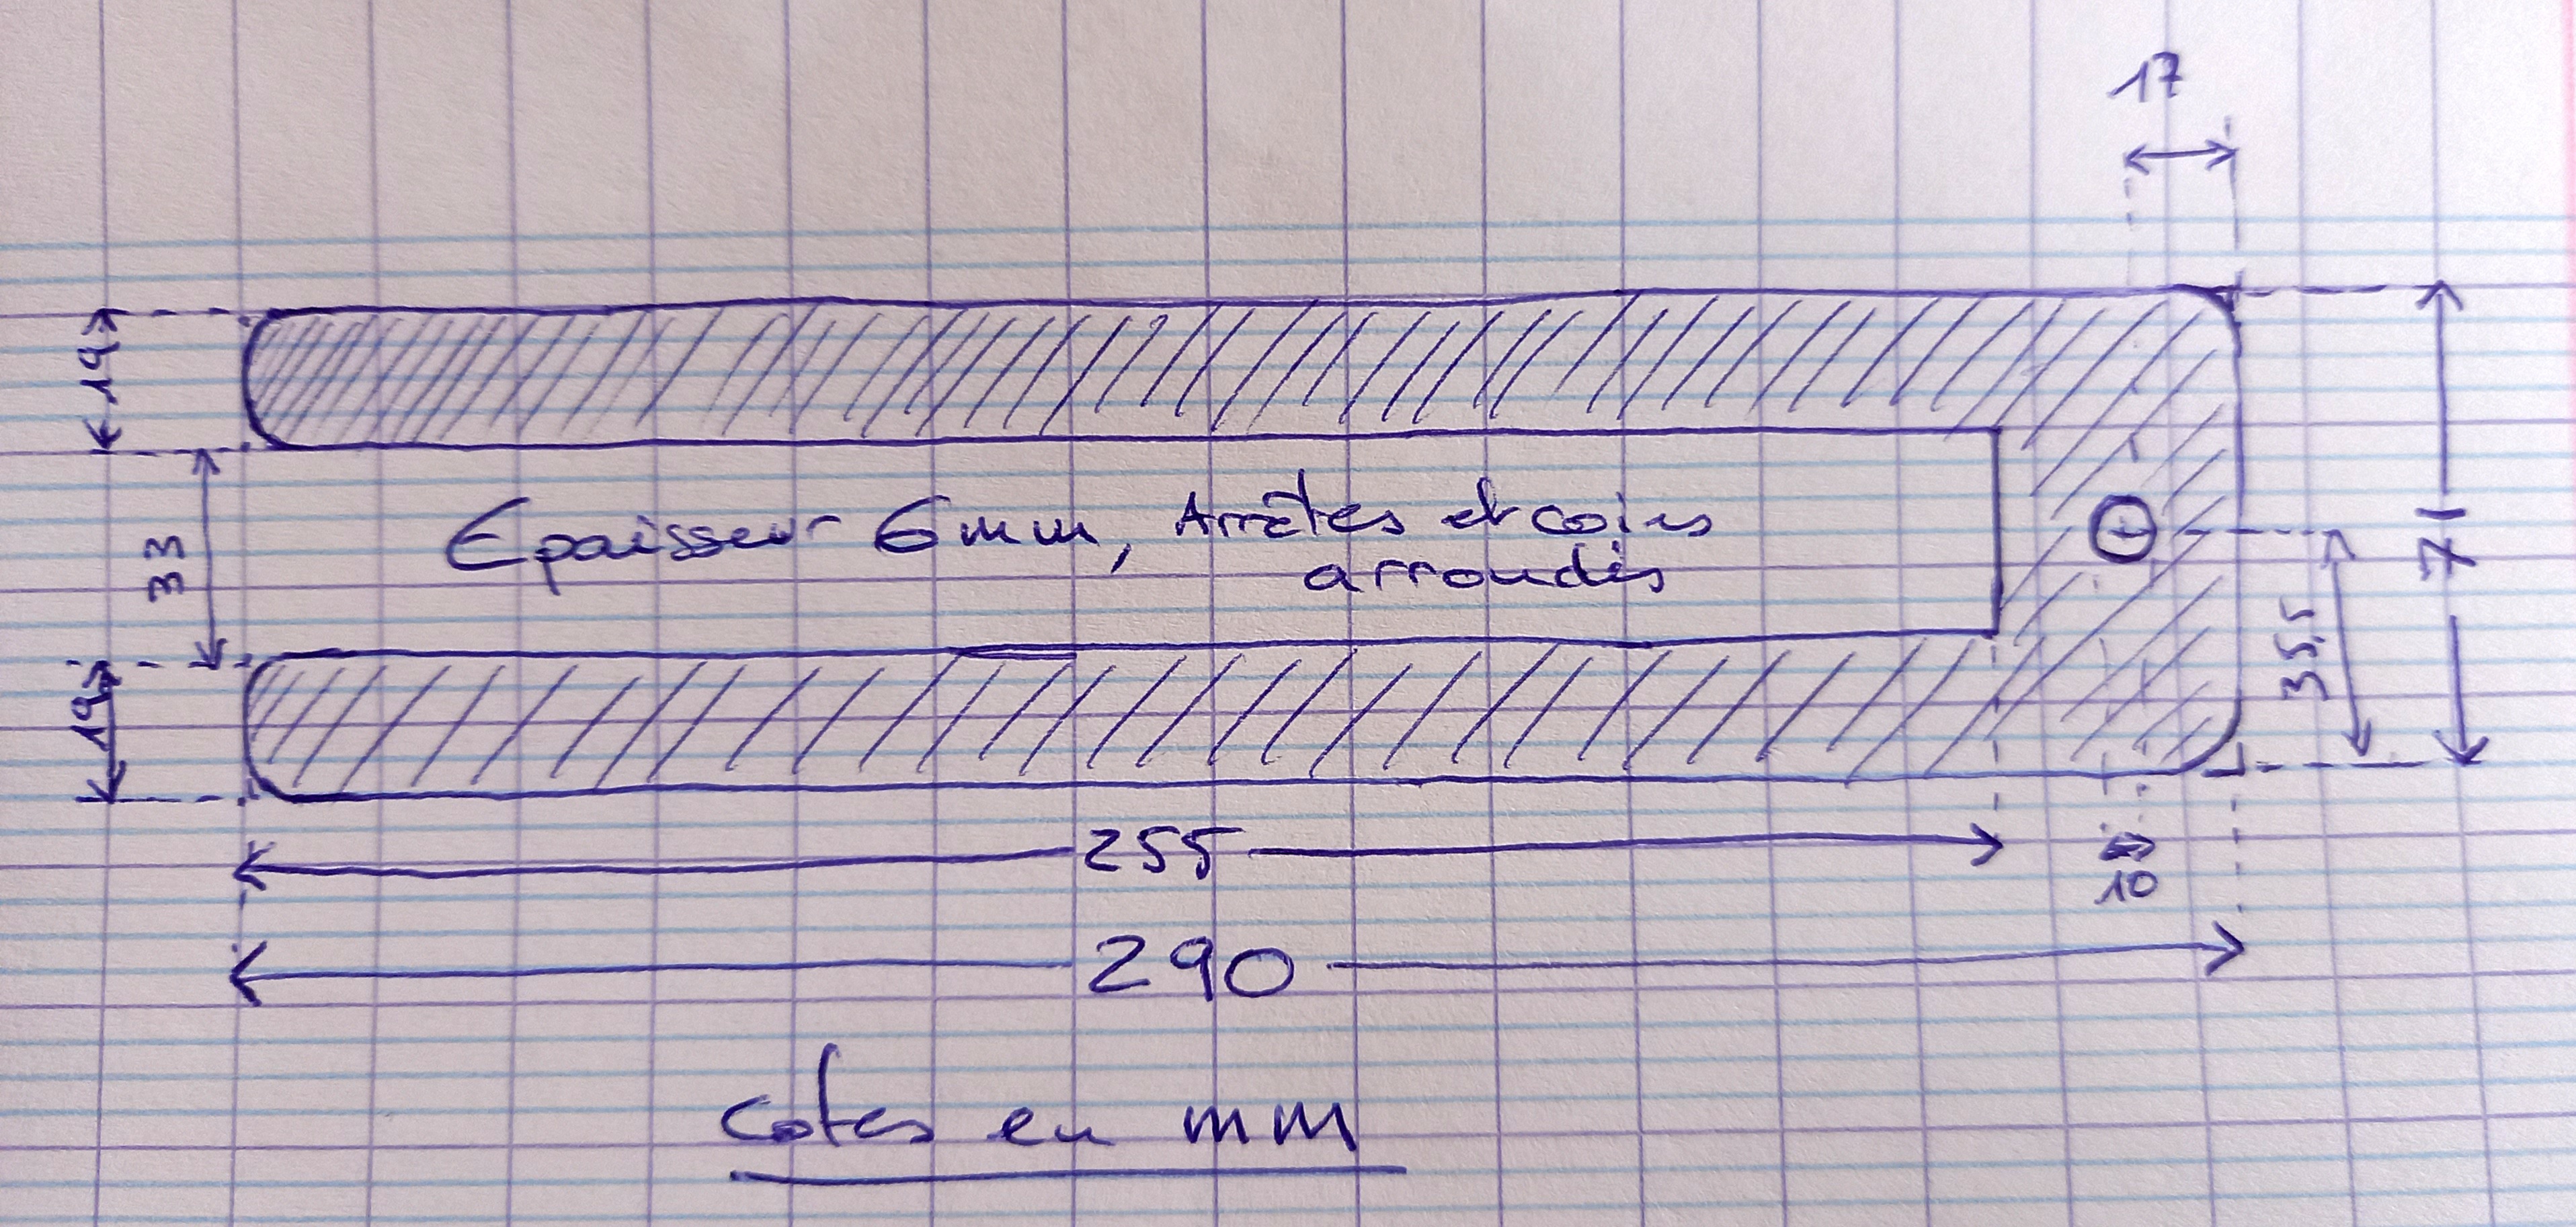 17
19
33
Epaisseur 6mm, Arrêtes et coins
arrondis
19
71
35,5
255
10
290
cotes en mm